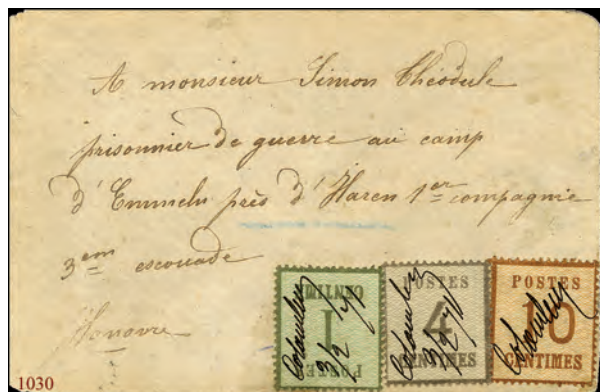 A monsieur Simon Théodule
prisonnier de guerre au camp
d'Emmeln près d'Haren 1er compagnie
3em escouade
Hanovre
POSTES
1
CENTIME
Colombey
3/2 71
POSTES
4
CENTIMES
Colombey
3/2 71
POSTES
10
CENTIMES
Colombey
1030